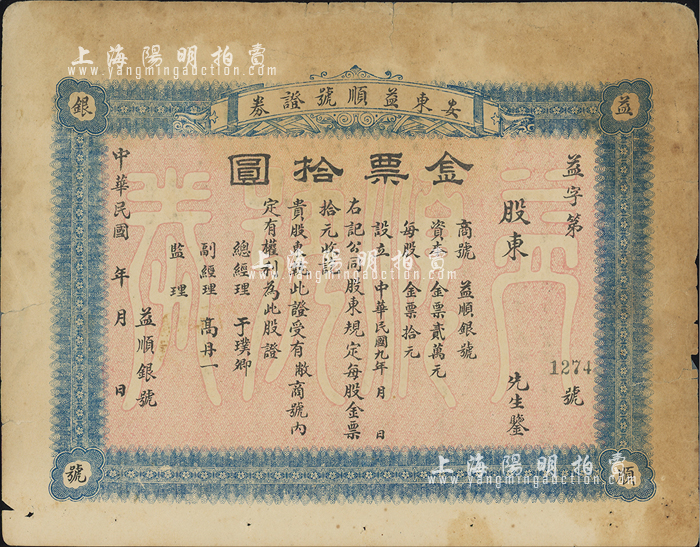 上海陽明拍賣
www.yangmingauction.com
安東益順號證券
益
順
銀
號
金票拾圓
益字第
1274
號
股東
先生鑒
商號 益順銀號
資本 金票貳萬元
每股 金票拾元
設立 中華民國九年 月 日
右記公司股東規定每股金票
拾元收訖
貴股東執此證受有敝商號內
定有權利為此股證
總經理 于璞卿
副經理 高丹一
監理
益順銀號
中華民國 年 月 日
上海陽明拍賣
www.yangmingauction.com
上海陽明拍賣
www.yangmingauction.com